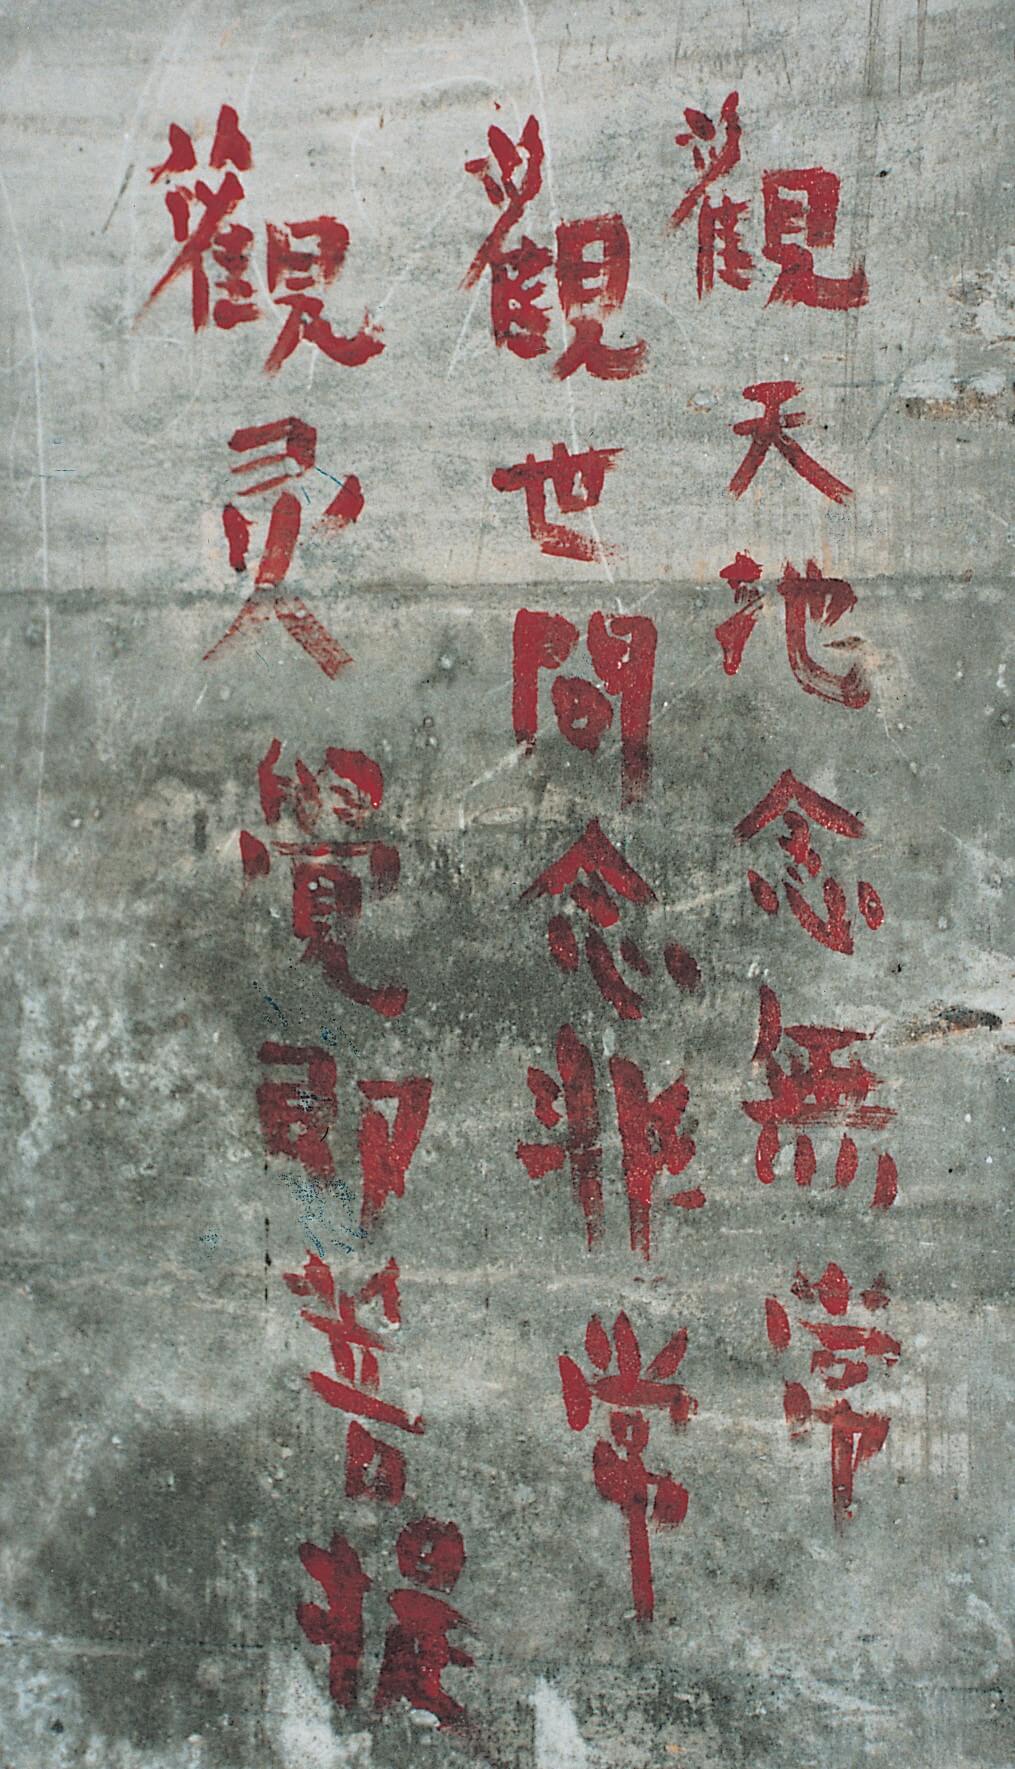 觀天地念無常
觀世間念非常
觀灵覺即菩提